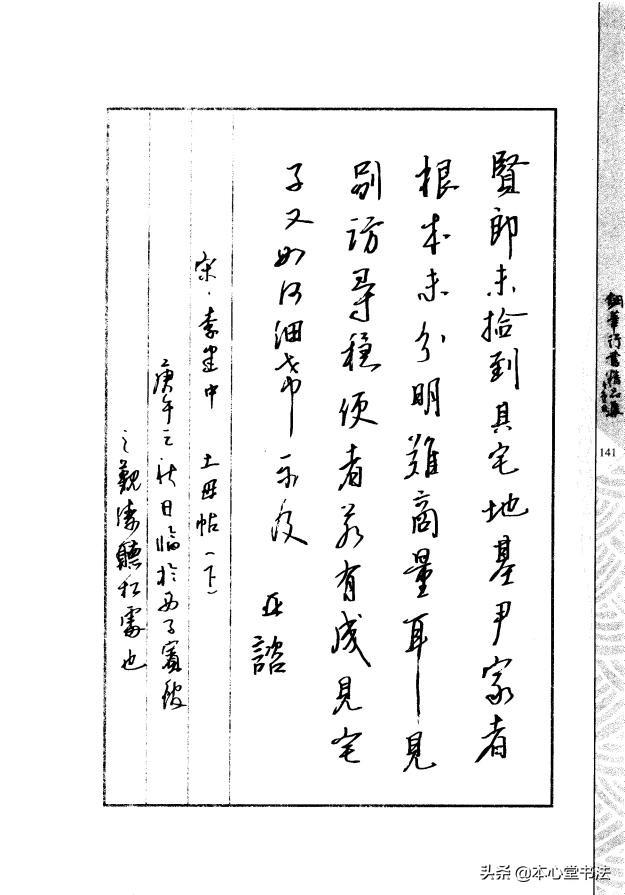 賢郎未捡到其宅地基尹家者
根本未分明難商量耳見
別訪尋穩便者若有成見宅
子又如何細希示及 亞諮
宋·李建中 土母帖(下)
庚午之秋日臨於西子賓館
之觀濤聽松處也
鋼筆行書精品集
141
头条 @本心堂书法